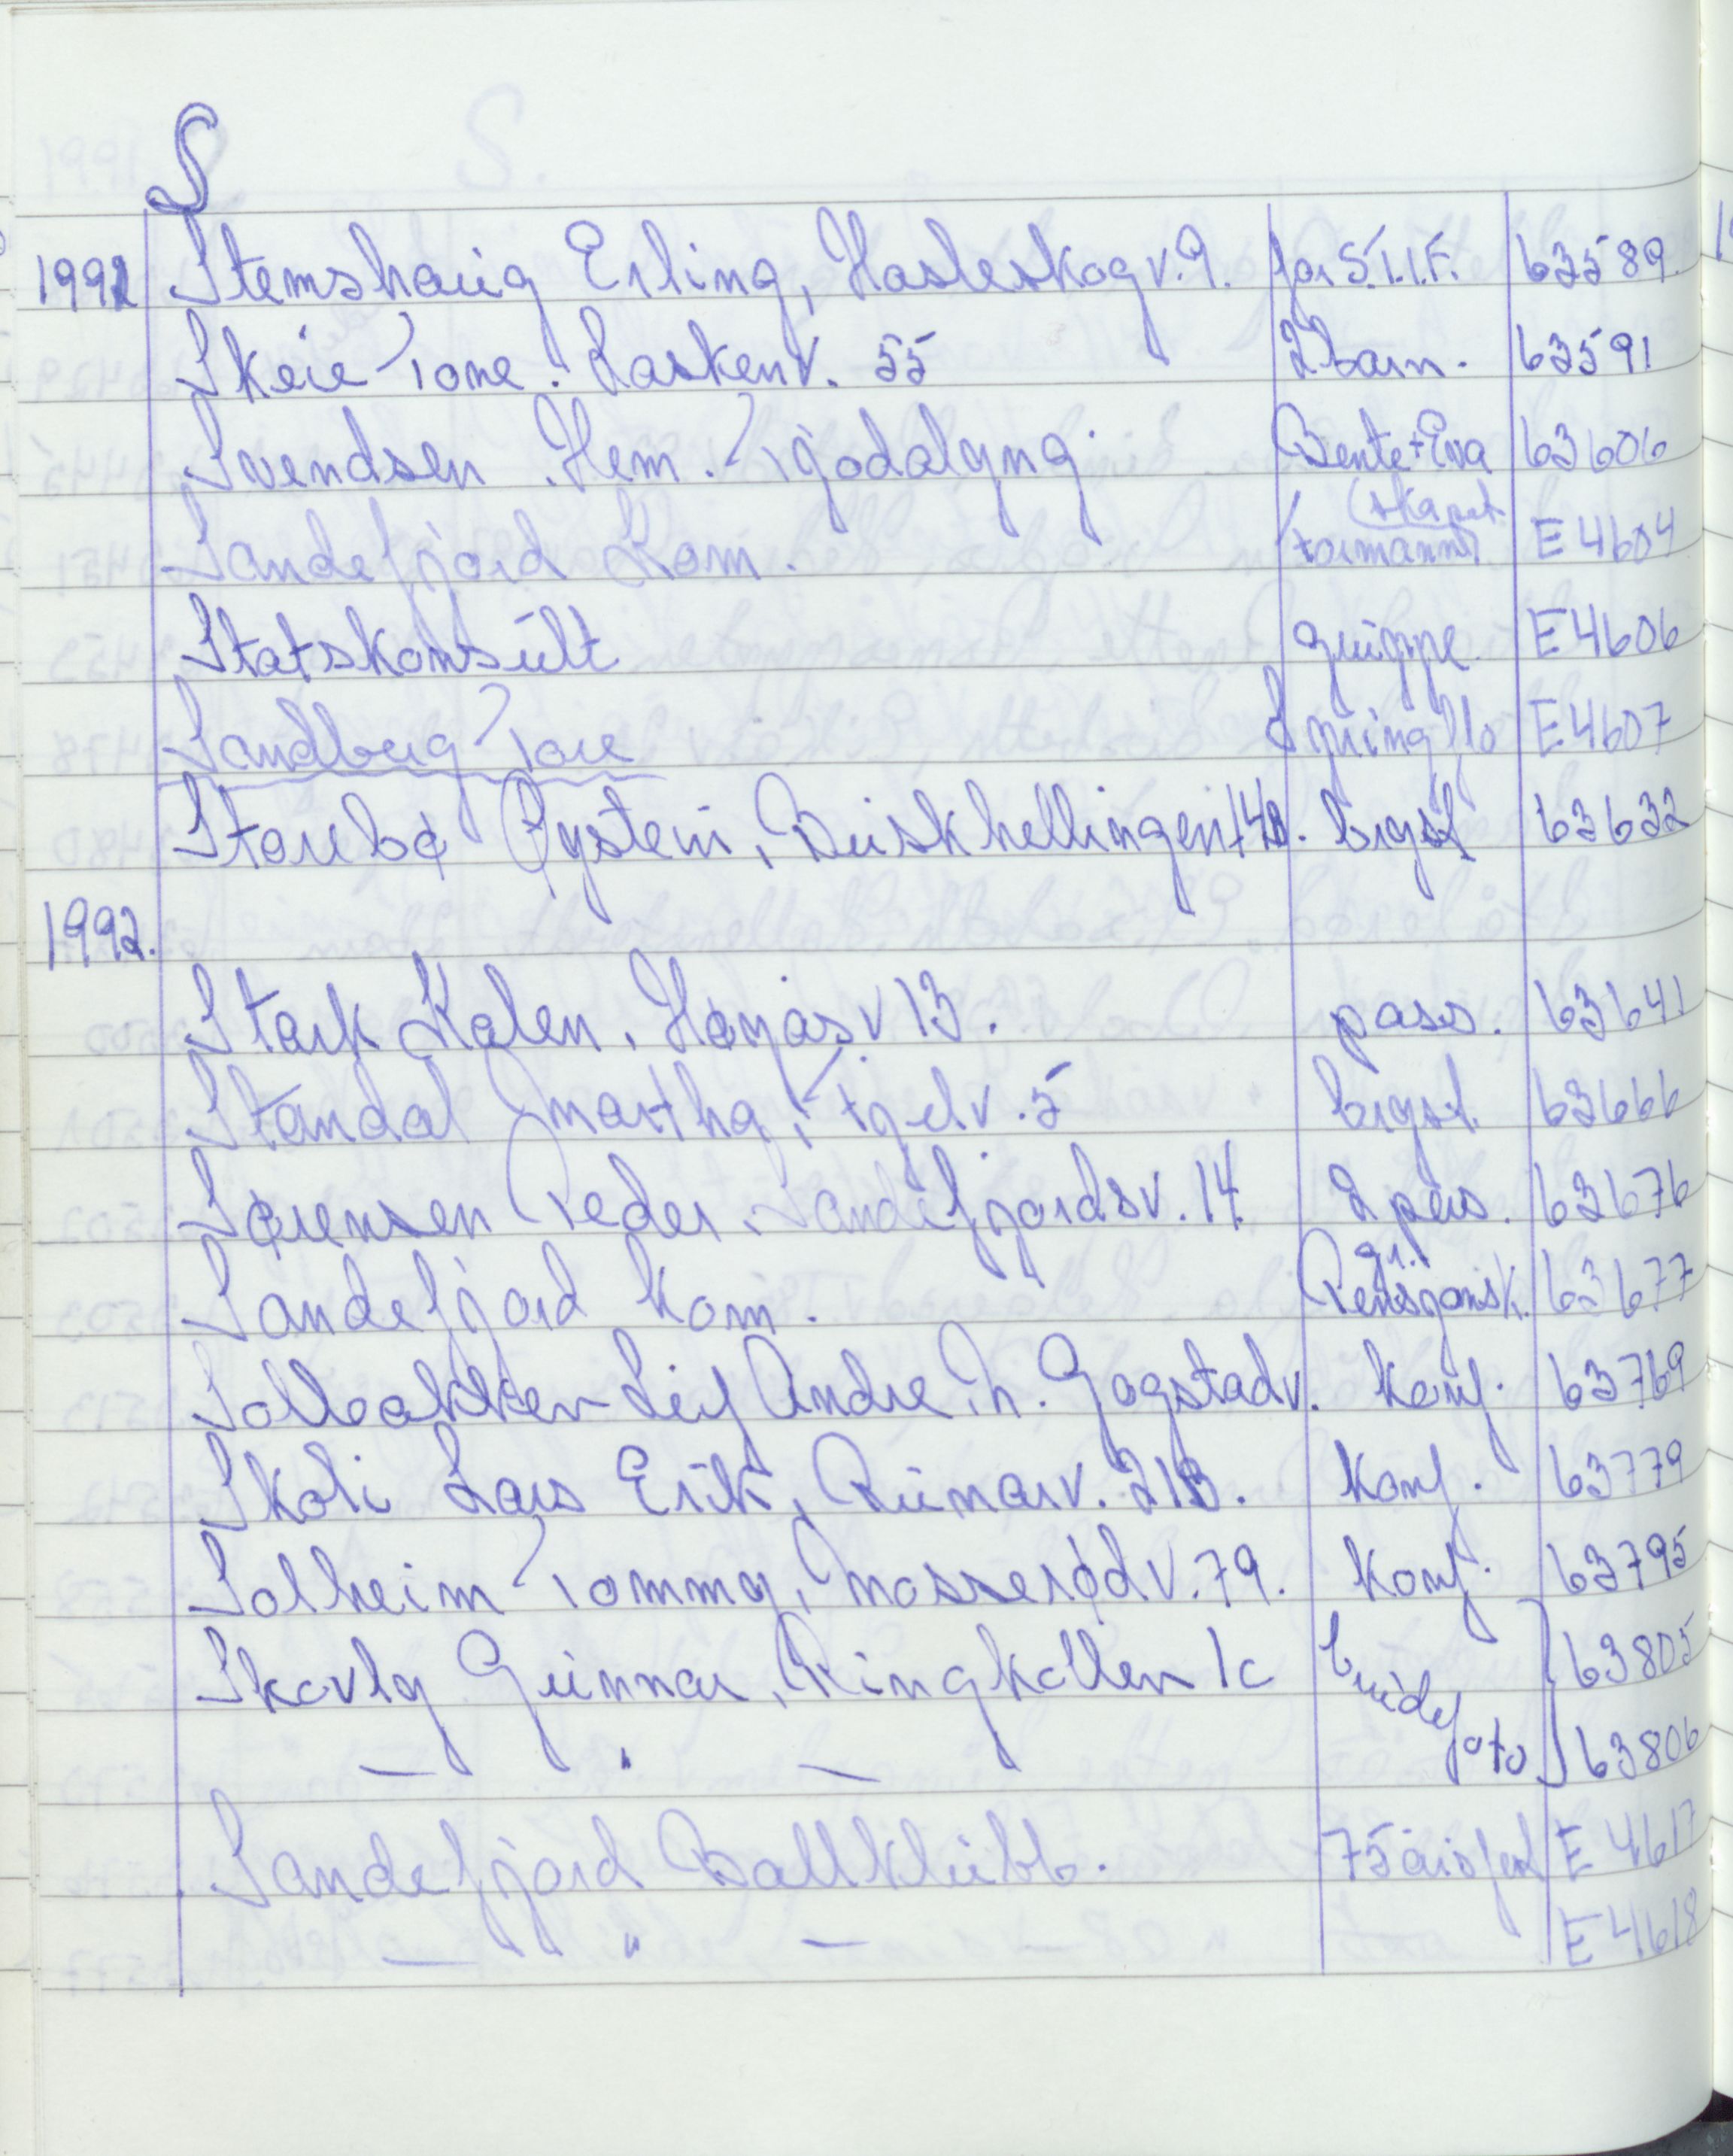 S
1992 Stemshaug Erling, Hasleskogv. 9. for S.T.I.F. 63589.
Skeie Tone. Laskenv. 55 2 barn. 63591
Svendsen Hem. Tjodalyng Bente + Eva 63606
Sandefjord Kom. formannskapet E 4604
Statskonsult gruppe. E 4606
Sandberg Tore E 4607
Storebø Øystein, Buskhellingen 14B. bryst 63632
1992.
Stark Kalen, 13. pass. 63641
Standal Martha, 5 bryst. 63666
Sørensen Peder. Sandefjordsv. 14 2 pers. 63676
Sandefjord Kom. gr. Pensjonsk. 63677
Solbakken Leif Andre, n. Gogstadv. Konf. 63769
Skoli Lars Erik, Runarv. 21B. Konf. 63779
Solheim Tommy, Mosserødv. 79. Konf. 63795
Skavly Gunnar, Ringkollen 1c brudefoto 63805
— " — 63806
Sandefjord Ballklubb. 75 års fest E 4617
— " — E 4618